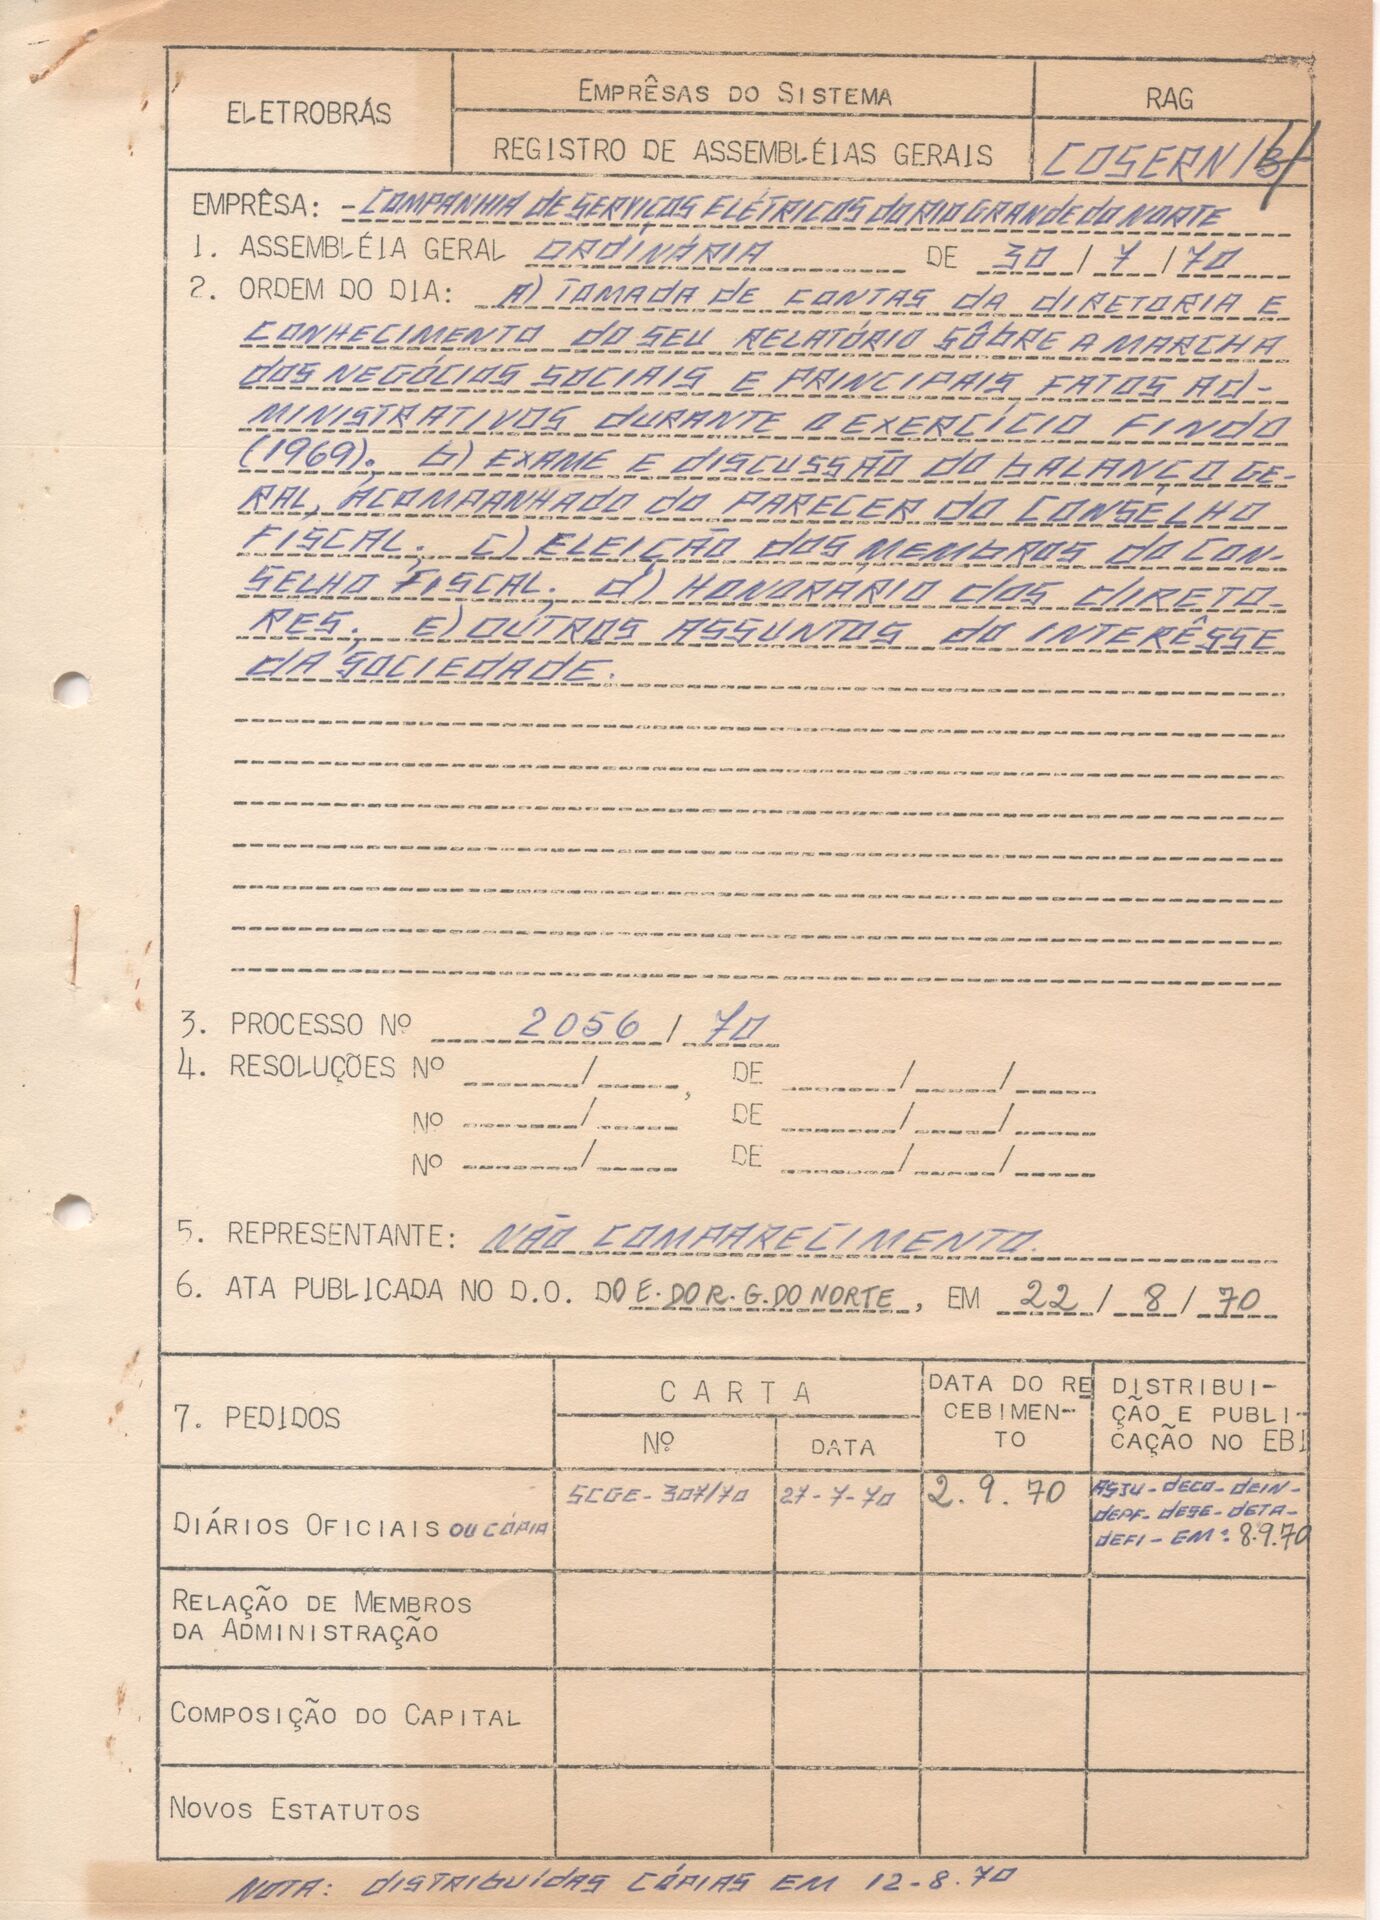 ELETROBRÁS
EMPRÊSAS DO SISTEMA
RAG
REGISTRO DE ASSEMBLÉIAS GERAIS
COSERN/
EMPRÊSA: - COMPANHIA DE SERVIÇOS ELÉTRICOS DO RIO GRANDE DO NORTE
1. ASSEMBLÉIA GERAL ORDINÁRIA DE 30/7/70
2. ORDEM DO DIA: A) TOMADA DE CONTAS DA DIRETORIA E
CONHECIMENTO DO SEU RELATÓRIO SÔBRE A MARCHA
DOS NEGÓCIOS SOCIAIS E PRINCIPAIS FATOS AD-
MINISTRATIVOS DURANTE O EXERCÍCIO FINDO
(1969). b) EXAME E DISCUSSÃO DO BALANÇO GE-
RAL, ACOMPANHADO DO PARECER DO CONSELHO
FISCAL. C) ELEIÇÃO DOS MEMBROS DO CON-
SELHO FISCAL. d) HONORÁRIO DOS DIRETO-
RES. E) OUTROS ASSUNTOS DO INTERÊSSE
DA SOCIEDADE.
3. PROCESSO Nº 2056/70
4. RESOLUÇÕES Nº / , DE / /
Nº / DE / /
Nº / DE / /
5. REPRESENTANTE: NÃO COMPARECIMENTO.
6. ATA PUBLICADA NO D.O. DO E. DO R. G. DO NORTE, EM 22/8/70
7. PEDIDOS
CARTA
Nº
DATA
DATA DO RE
CEBIMEN-
TO
DISTRIBUI-
ÇÃO E PUBLI-
CAÇÃO NO EBI
DIÁRIOS OFICIAIS OU CÓPIA
SCGE-307/70
27-7-70
2.9.70
ASJU-DECO-DEIN-
DEPF-DESE-DETA-
DEFI-EM: 8.9.70
RELAÇÃO DE MEMBROS
DA ADMINISTRAÇÃO
COMPOSIÇÃO DO CAPITAL
NOVOS ESTATUTOS
NOTA: DISTRIBUÍDAS CÓPIAS EM 12-8.70